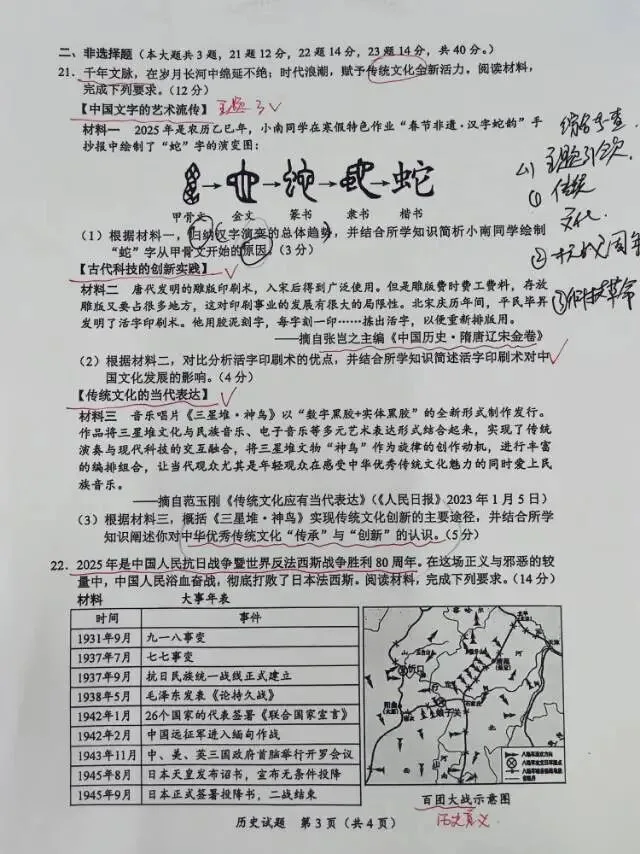 二、非选择题（本大题共3题，21题12分，22题14分，23题14分，共40分。）
21. 千年文脉，在岁月长河中绵延不绝；时代浪潮，赋予传统文化全新活力。阅读材料，
完成下列要求。（12分）
【中国文字的艺术流传】
材料一 2025年是农历乙巳年，小南同学在寒假特色作业“春节非遗·汉字蛇韵”手
抄报中绘制了“蛇”字的演变图：
蛇
甲骨文 金文 篆书 隶书 楷书
（1）根据材料一，归纳汉字演变的总体趋势，并结合所学知识简析小南同学绘制
“蛇”字从甲骨文开始的原因。（3分）
【古代科技的创新实践】
材料二 唐代发明的雕版印刷术，入宋后得到广泛使用。但是雕版费时费工费料，存放
雕版又要占很多地方，这对印刷事业的发展有很大的局限性。北宋庆历年间，平民毕昇
发明了活字印刷术。他用胶泥刻字，每字刻一印……拣出活字，以便重新排版用。
——摘自张岂之主编《中国历史·隋唐辽宋金卷》
（2）根据材料二，对比分析活字印刷术的优点，并结合所学知识简述活字印刷术对中
国文化发展的影响。（4分）
【传统文化的当代表达】
材料三 音乐唱片《三星堆·神鸟》以“数字黑胶+实体黑胶”的全新形式制作发行。
作品将三星堆文化与民族音乐、电子音乐等多元艺术表达形式结合起来，实现了传统
演奏与现代科技的交互融合，将三星堆文物“神鸟”作为旋律的创作动机，进行丰富
的编排组合，让当代观众尤其是年轻观众在感受中华优秀传统文化魅力的同时爱上民
族音乐。
——摘自范玉刚《传统文化应有当代表达》（《人民日报》2023年1月5日）
（3）根据材料三，概括《三星堆·神鸟》实现传统文化创新的主要途径，并结合所学
知识阐述你对中华优秀传统文化“传承”与“创新”的认识。（5分）
22. 2025年是中国人民抗日战争暨世界反法西斯战争胜利80周年。在这场正义与邪恶的较
量中，中国人民浴血奋战，彻底打败了日本法西斯。阅读材料，完成下列要求。（14分）
材料 大事年表
时间 事件
1931年9月 九一八事变
1937年7月 七七事变
1937年9月 抗日民族统一战线正式建立
1938年5月 毛泽东发表《论持久战》
1942年1月 26个国家的代表签署《联合国家宣言》
1942年2月 中国远征军进入缅甸作战
1943年11月 中、美、英三国政府首脑举行开罗会议
1945年8月 日本天皇发布诏书，宣布无条件投降
1945年9月 日本正式签署投降书，二战结束
娘子关
百团大战示意图
历史意义
历史试题 第3页（共4页）
① 传统
文化